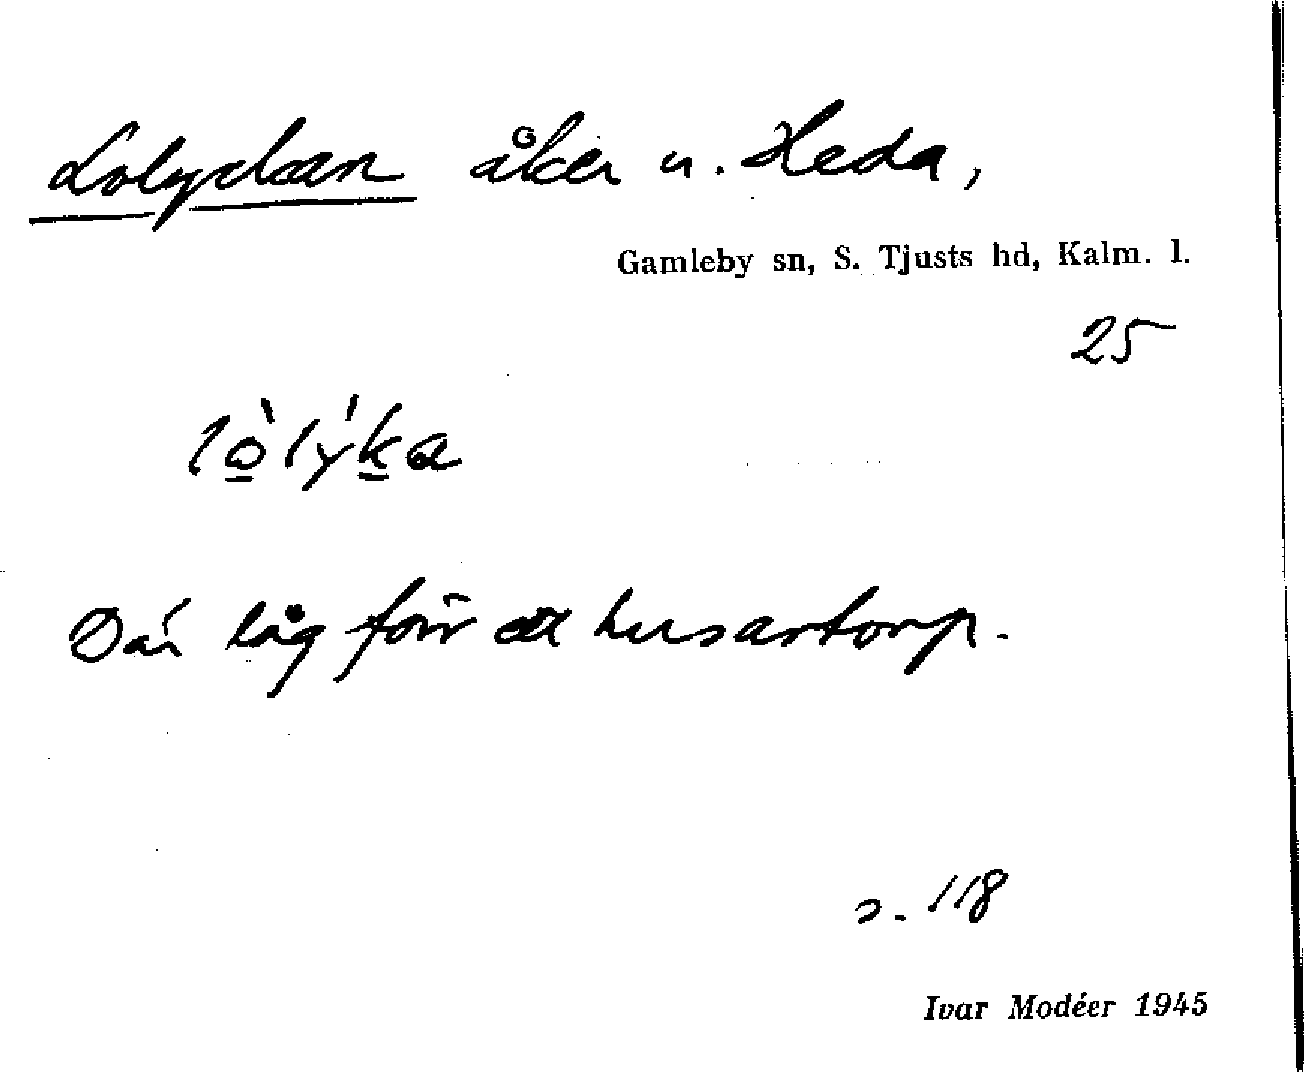 Lolyckan åker u. Heda,
Gamleby sn, S. Tjusts hd, Kalm. l.
25
lò̱lýḵa
Där låg förr ett husartorp.
s. 118
Ivar Modéer 1945